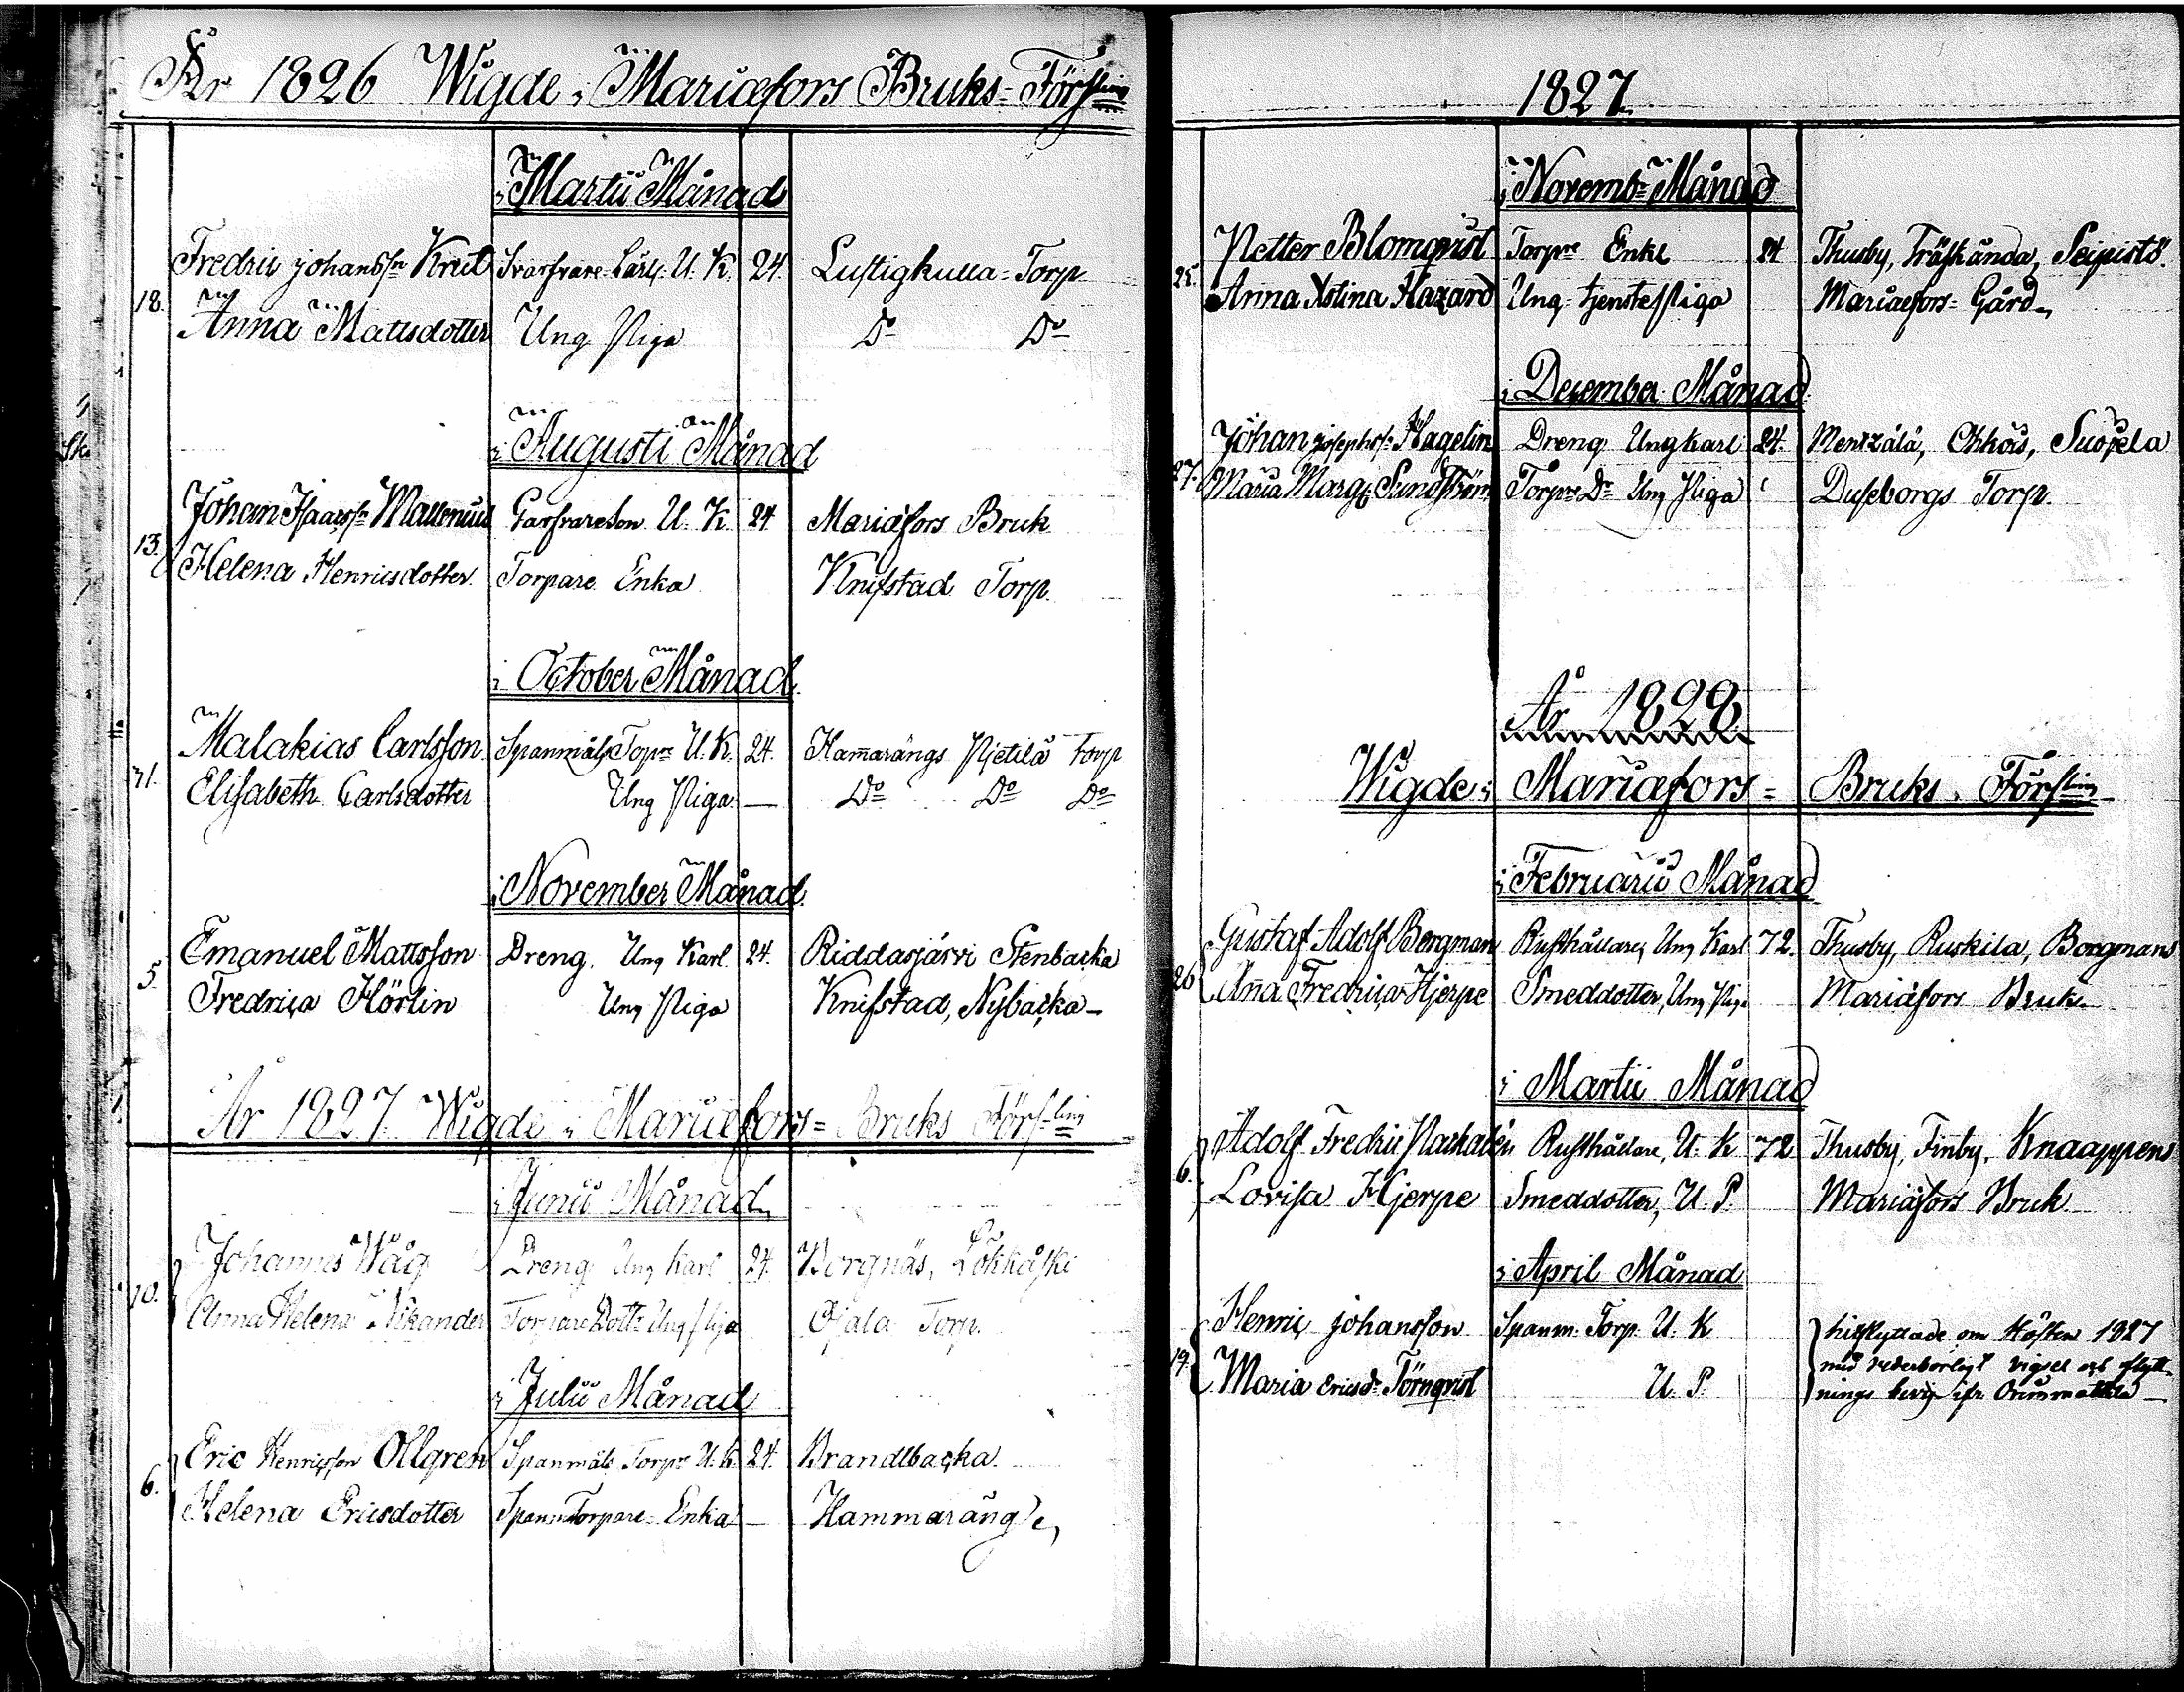 År 1826 Wigde i Mariæfors Bruks-Förs:ling
i Martii Månad
Fredric Johanss:n Krut Svarfvare Lärl. U. K. 24. Lustigkulla Torp
18.
Anna Mattsdotter Ung Piga Do Do
i Augusti Månad
Johan Isaacss:n Mallenius Garfvare Son U. K. 24 Mariæfors Bruk
13.
Helena Henricsdotter Torpare Enka Knifstad Torp.
i October Månad
Malakias Carlsson Spanmåls Torp:re U. K. 24. Hamarängs Pietilä Torp
71.
Elisabeth Carlsdotter Ung Piga — Do Do Do
i November Månad
Emanuel Mattsson Dreng, Ung Karl. 24. Riddasjärvi Stenbacka
5.
Fredrica Hörlin Ung Piga Knifstad, Nybacka
År 1827 Wigde i Mariæfors Bruks Förs:ling
i Junii Månad
Johannes Wåg Dreng Ung Karl 24. Borgnäs,
10.
Anna Helena Nikander Torpare Dott:r Ung Piga Ojala Torp.
i Julii Månad
Eric Henricsson Ollgren Spanmåls Torp:re U. K. 24. Brandtbacka.
6.
Helena Ericsdotter Spanm: Torpare Enka — Hammaräng
1827
i Novemb:r Månad
Petter Blomqvist Torp:re Enkl 24 Thusby, Träskända, Seipistö.
25.
Anna Xstina Hazard Ung tjenste Piga Mariæfors Gård
i December Månad
Johan Josephs: Hagelin Dreng Ungkarl 24. Mentzälä, Ohkois, Suopela
27.
Maria Marg: Sundström Torp:re Dr Ung Piga Duseborgs Torp.
År 1828
Wigde i Mariæfors Bruks Förs:ling
i Februarii Månad
Gustaf Adolf Bergman Rusthållare, Ung Karl 72. Thusby, Ruskila, Bergmans
26
Anna Fredrica Hjerpe Smeddotter, Ung Pig. Mariæfors Bruk
i Martii Månad
Adolf Fredric Rusthållare, U. K 72 Thusby, Finby, Knaappens
6.
Lovisa Hjerpe Smeddotter, U. P. Mariæfors Bruk
i April Månad
Henric Johansson Spanm. Torp. U. K hitflyttade om Hösten 1827
19. med vederbörligt vigsel och flytt-
Maria Ericsd:r Törnqvist U. P. nings bevis ifr. Orimattila